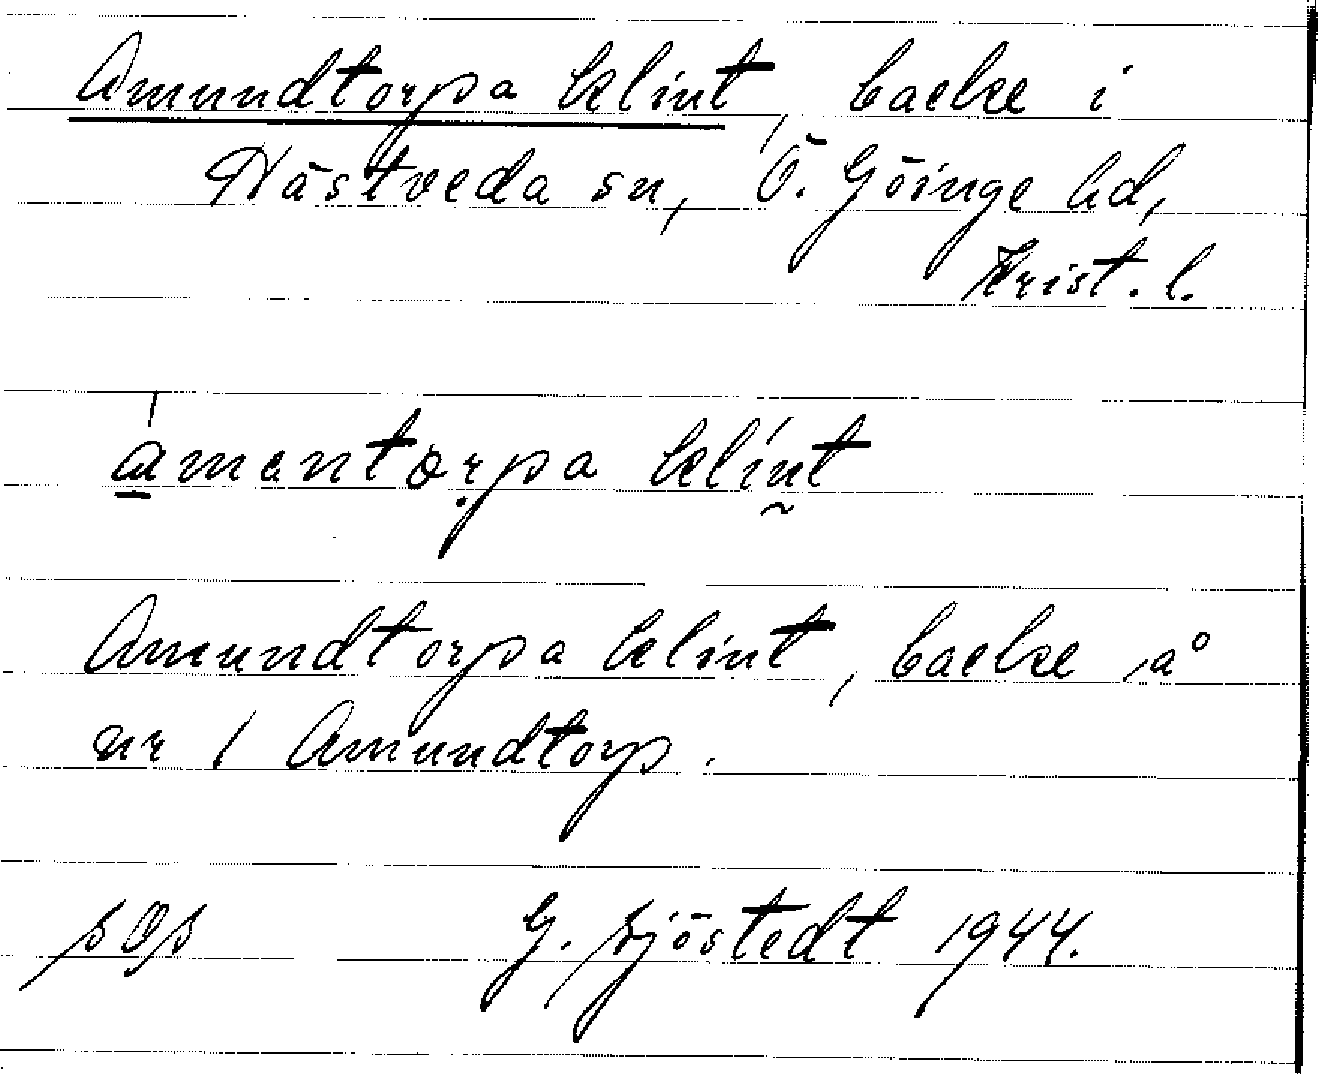 Amundtorpa klint, backe i
Hästveda sn, Ö. Göinge hd,
Krist. l.
amentorpa klint
Amundtorpa klint, backe å
nr 1 Amundtorp.
G. Sjöstedt 1944.